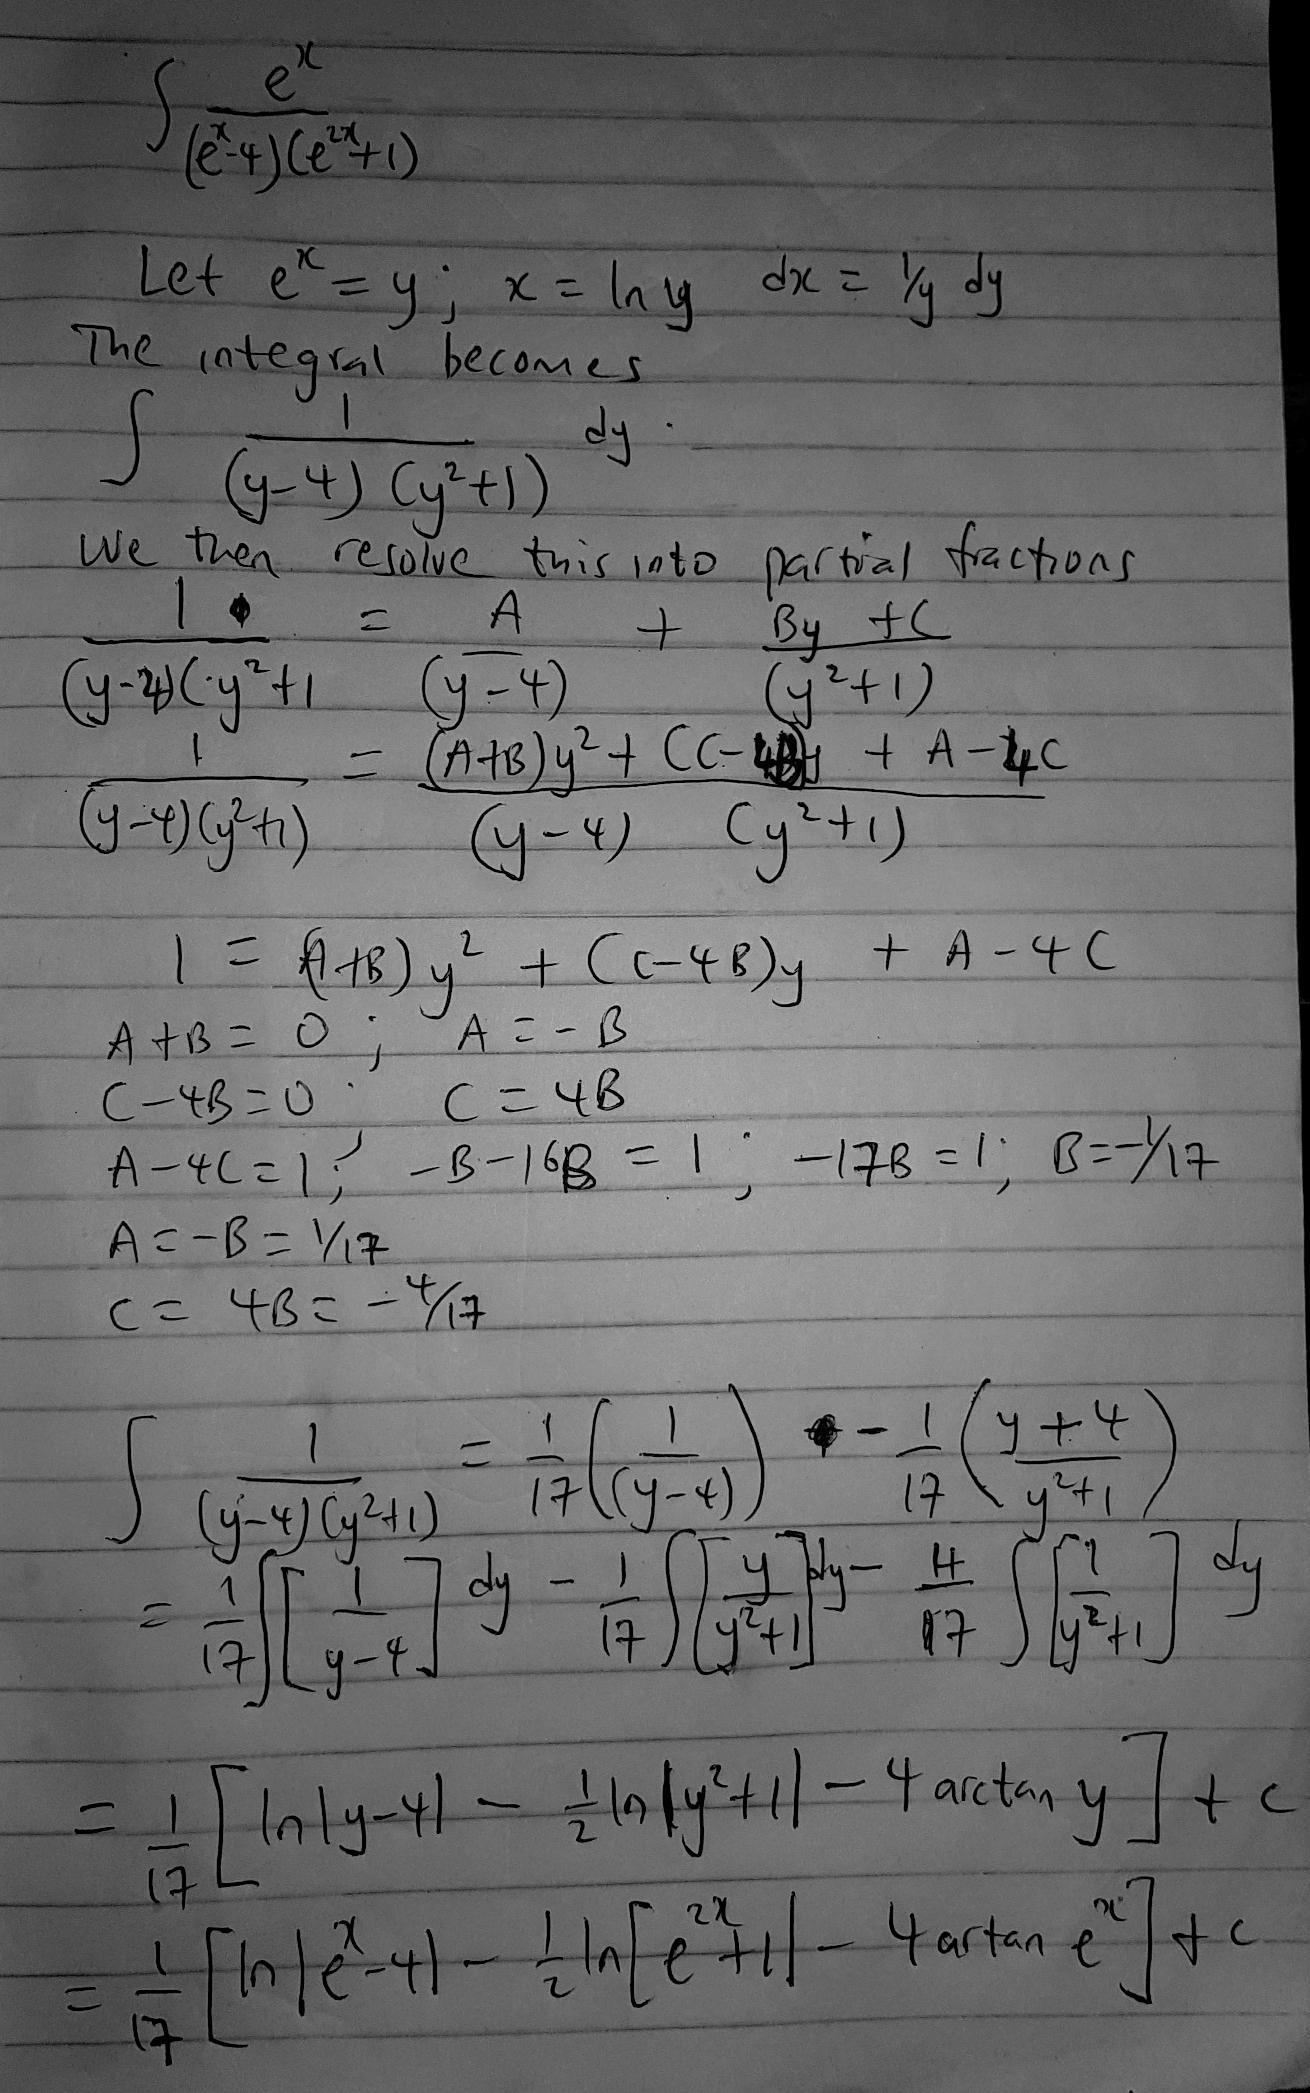 ∫ e^x / (e^x-4)(e^2x+1)
Let e^x = y ; x = ln y dx = 1/y dy
The integral becomes
∫ 1 / (y-4)(y²+1) dy .
We then resolve this into partial fractions
1 / (y-4)(y²+1 = A / (y-4) + By + C / (y²+1)
1 / (y-4)(y²+1) = (A+B)y² + (C-4B)y + A-4C / (y-4) (y²+1)
1 = (A+B)y² + (C-4B)y + A-4C
A+B = 0 ; A = -B
C-4B=0 ; C = 4B
A-4C=1 ; -B-16B = 1 ; -17B = 1 ; B=-1/17
A = -B = 1/17
C = 4B = -4/17
∫ 1 / (y-4)(y²+1) = 1/17 (1 / (y-4)) - 1/17 (y+4 / y²+1)
= 1/17 ∫ [1 / y-4] dy - 1/17 ∫ [y / y²+1] dy - 4/17 ∫ [1 / y²+1] dy
= 1/17 [ln|y-4| - 1/2 ln|y²+1| - 4 arctan y] + c
= 1/17 [ln|e^x-4| - 1/2 ln[e^2x+1| - 4 artan e^x] + c